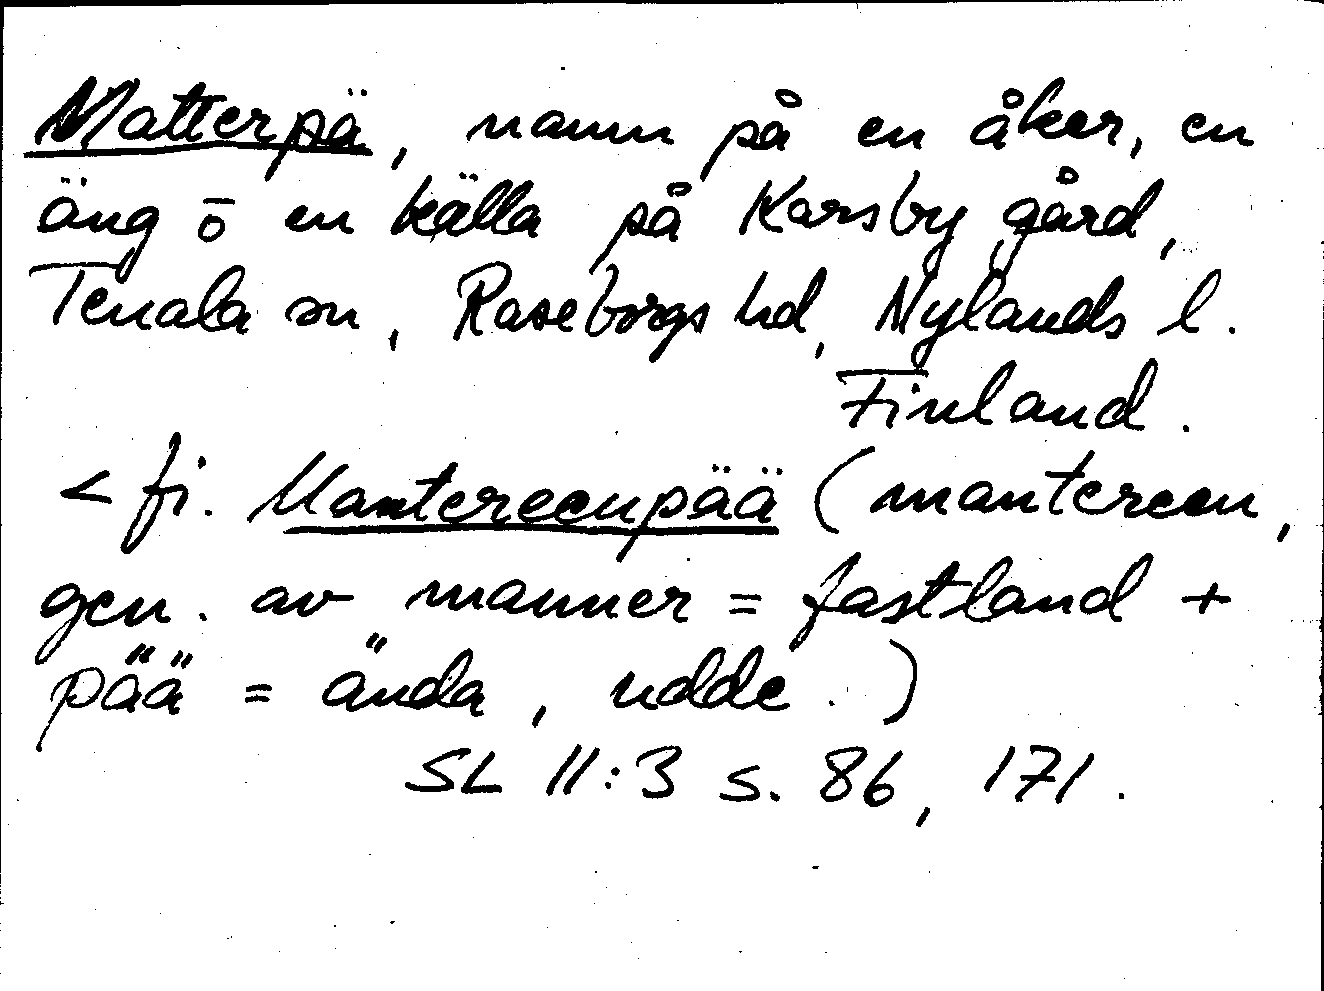 Matterpä, namn på en åker, en
äng ō en källa på Karsby gård,
Tenala sn, Raseborgs hd, Nylands l.
Finland.
< fi. Mantereenpää (mantereen,
gen. av manner = fastland +
pää = ända, udde.)
SL II:3 s. 86, 171.